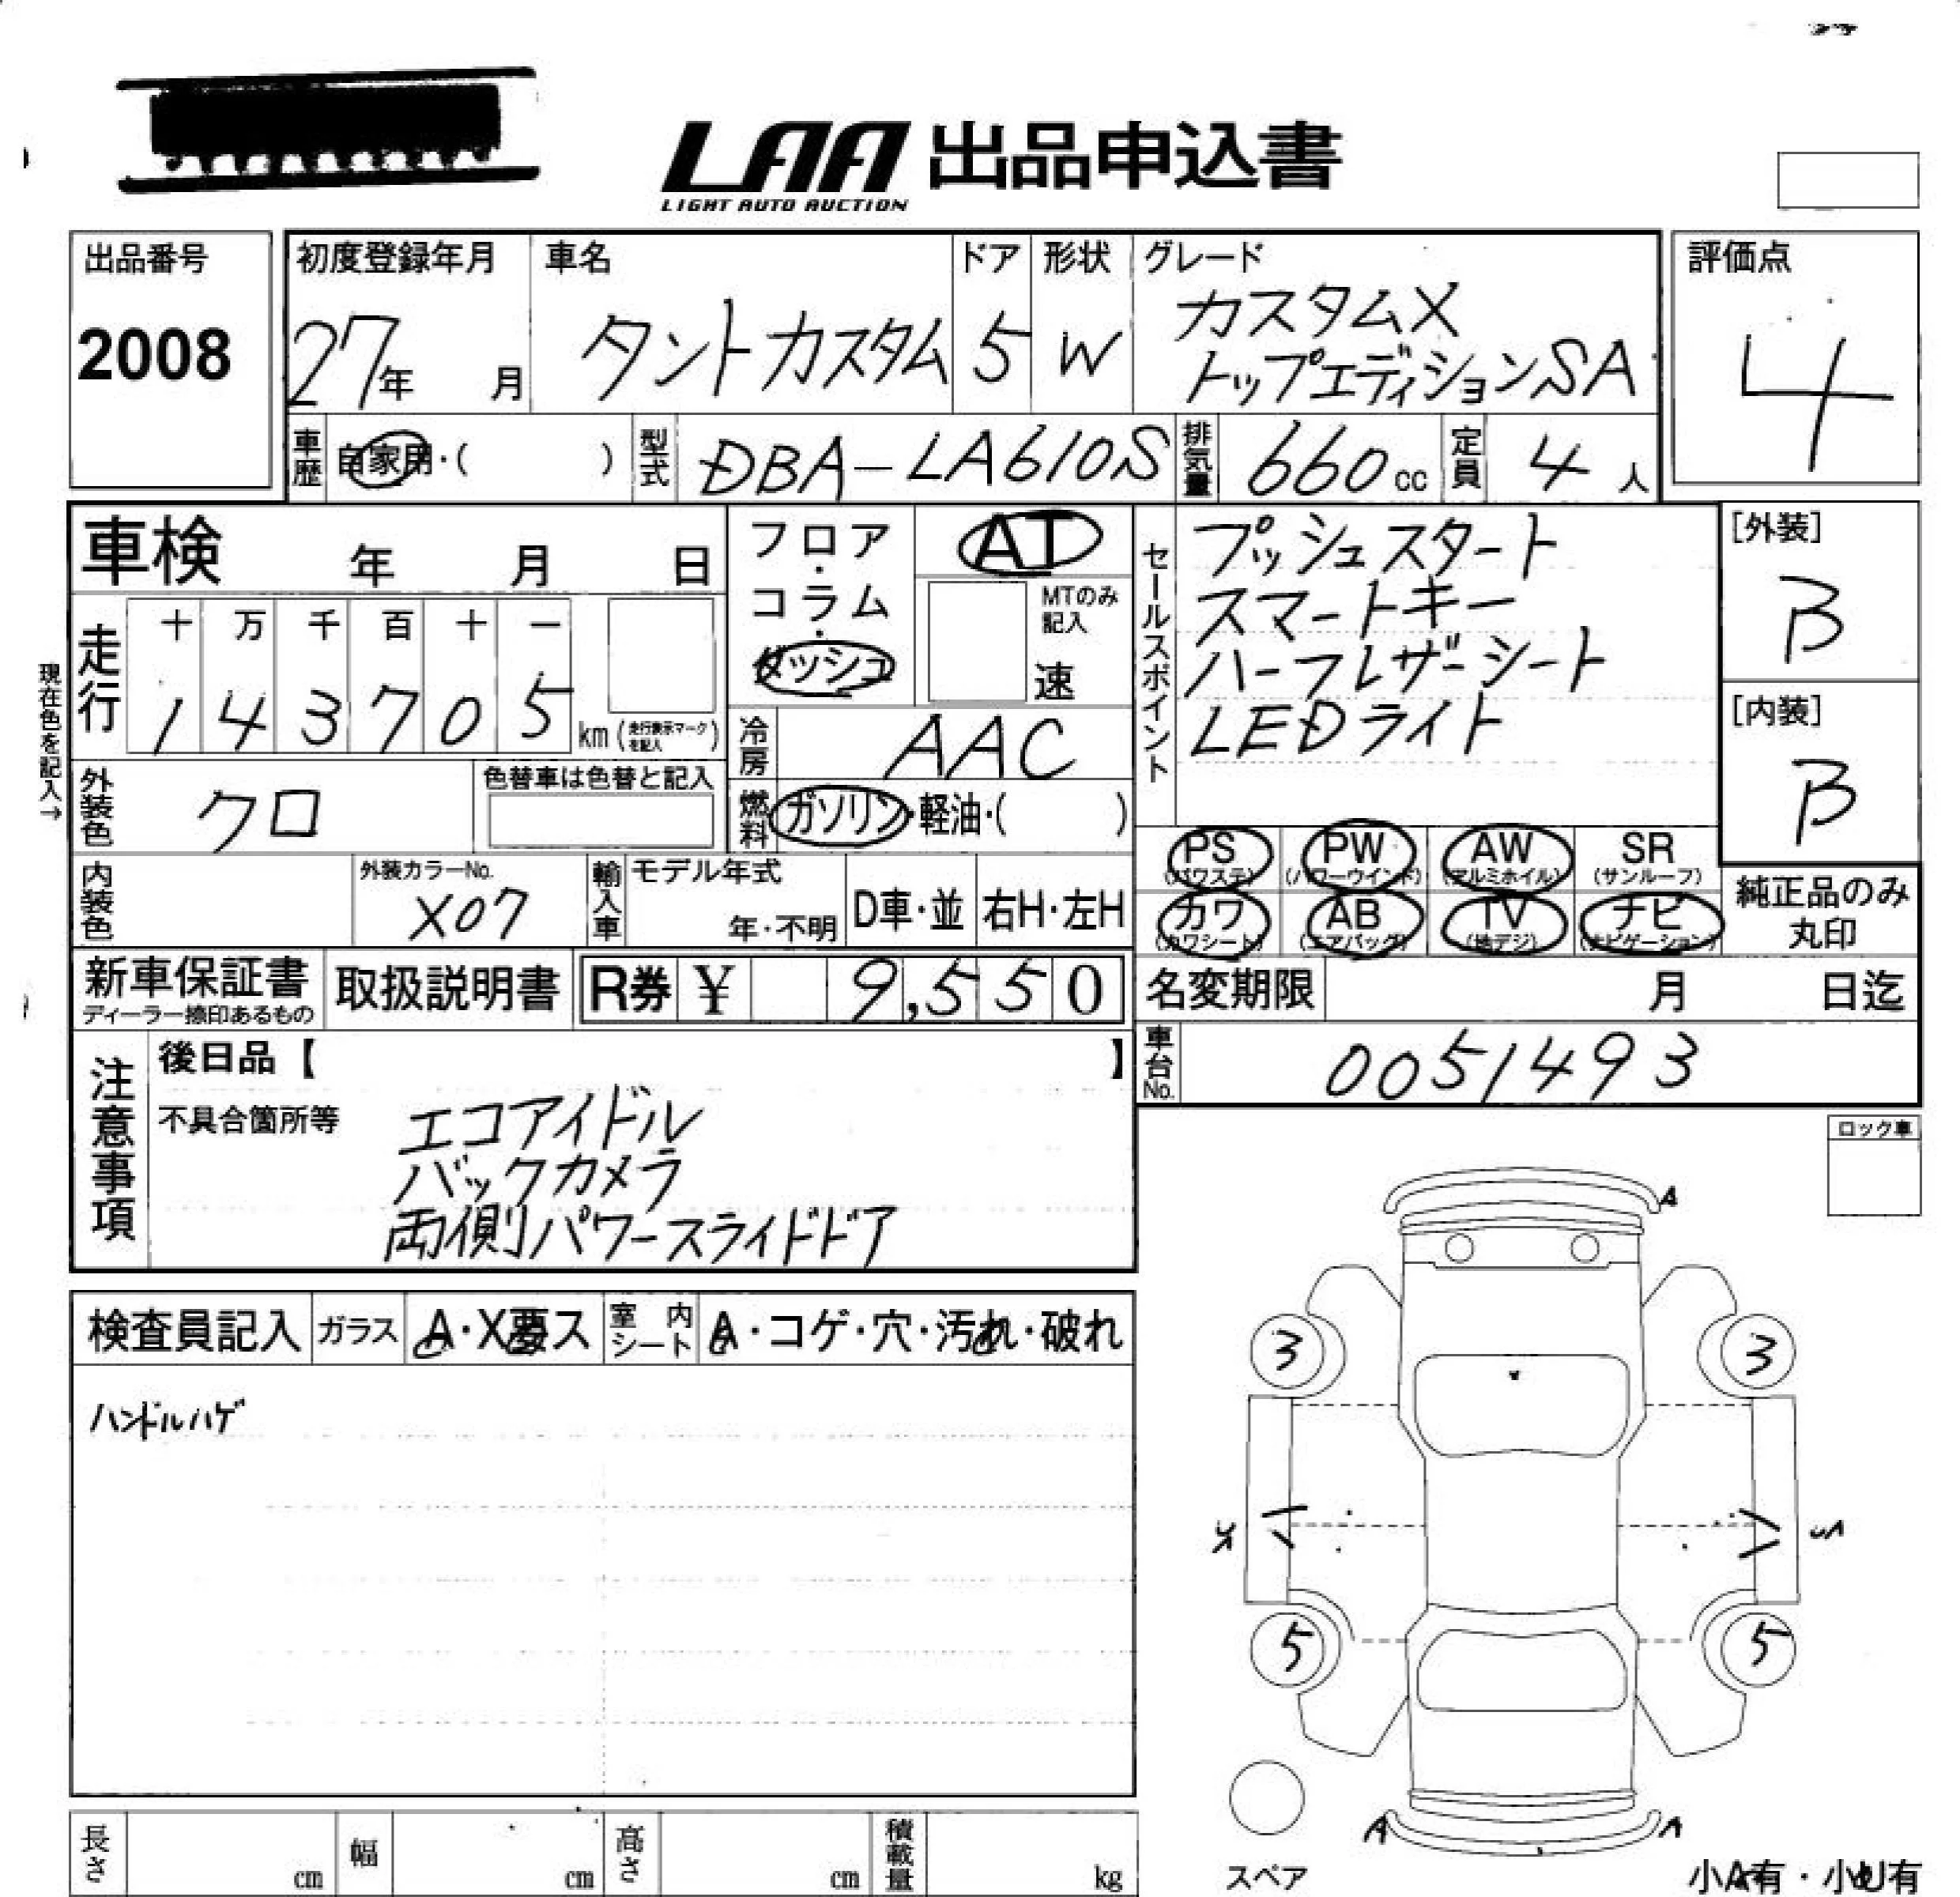 LAA 出品申込書
LIGHT AUTO AUCTION
出品番号
2008
初度登録年月
27年 月
車名
タントカスタム
ドア
5
形状
W
グレード
カスタムX
トップエディションSA
評価点
4
車歴
自家用・( )
型式
DBA-LA610S
排気量
660cc
定員
4人
車検 年 月 日
フロア・コラム・ダッシュ
AT
MTのみ記入
速
セールスポイント
プッシュスタート
スマートキー
ハーフレザーシート
LEDライト
[外装]
B
[内装]
B
現在色を記入→
走行
十 万 千 百 十 一
1 4 3 7 0 5 km (走行表示マークを記入)
冷房
AAC
外装色
クロ
色替車は色替と記入
燃料
ガソリン・軽油・( )
内装色
外装カラーNo.
X07
輸入車
モデル年式
年・不明
D車・並
右H・左H
PS (パワステ)
PW (パワーウインド)
AW (アルミホイル)
SR (サンルーフ)
カワ (カワシート)
AB (エアバッグ)
TV (地デジ)
ナビ (ナビゲーション)
純正品のみ
丸印
新車保証書
ディーラー捺印あるもの
取扱説明書
R券 ¥ 9,550
名変期限 月 日迄
車台No.
0051493
注意事項
後日品【 】
不具合箇所等
エコアイドル
バックカメラ
両側パワースライドドア
ロック車
検査員記入
ガラス
A・X要ス
室内シート
A・コゲ・穴・汚れ・破れ
ハンドルハゲ
A
3
3
5
5
A
A
スペア
小A有・小U有
長さ cm
幅 cm
高さ cm
積載量 kg